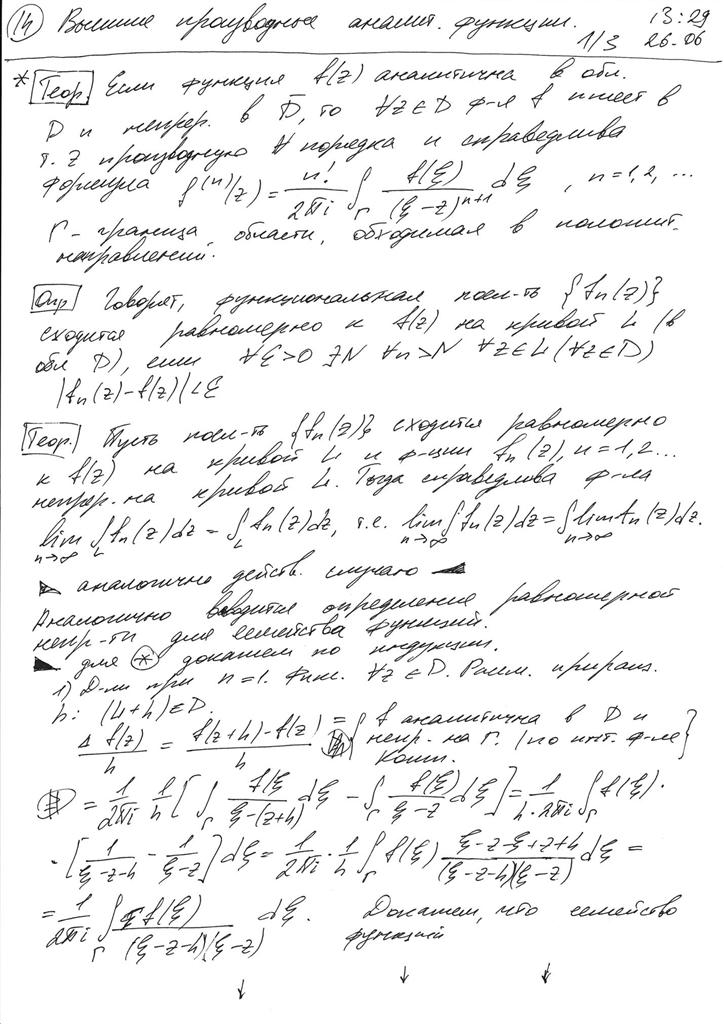 14 Высшие производные аналит. функции. 13:29
1/3 26.06
* Теор. Если функция f(z) аналитична в обл.
D и непрер. в D̄, то ∀z∈D ф-я f имеет в
т. z производную ∀ порядка и справедлива
формула f⁽ⁿ⁾(z) = n!/2πi ∫_Γ f(ξ)/(ξ-z)ⁿ⁺¹ dξ , n=1,2,...
Γ - граница области, обходимая в положит.
направлений.
Опр Говорят, функциональная посл-ть {fn(z)}
сходится равномерно к f(z) на кривой L (в
обл D), если ∀ξ>0 ∃N ∀n>N ∀z∈L (∀z∈D)
|fn(z)-f(z)|<ξ
Теор. Пусть посл-ть {fn(z)} сходится равномерно
к f(z) на кривой L и ф-ции fn(z), n=1,2...
непрер. на кривой L. Тогда справедлива ф-ла
lim_{n→∞} ∫_L fn(z)dz = ∫_L fn(z)dz, т.е. lim_{n→∞} ∫ fn(z)dz = ∫ lim_{n→∞} fn(z)dz.
аналогично действ. случаю
Аналогично вводится определение равномерной
непр-ти для семейства функций.
для * докажем по индукции.
1) Д-ли при n=1. Фикс. ∀z∈D. Рассм. приращ.
h: (L+h)∈D.
Δf(z)/h = f(z+h)-f(z)/h = { f аналитична в D и
непр. на Γ. (по инт. ф-ле
Коши. }
= 1/2πi 1/h [ ∫_Γ f(ξ)/ξ-(z+h) dξ - ∫_Γ f(ξ)/ξ-z dξ ] = 1/h·2πi ∫_Γ f(ξ)·
· [ 1/ξ-z-h - 1/ξ-z ] dξ = 1/2πi · 1/h ∫_Γ f(ξ) ξ-z-ξ+z+h/(ξ-z-h)(ξ-z) dξ =
= 1/2πi ∫_Γ f(ξ)/(ξ-z-h)(ξ-z) dξ. Докажем, что семейство
функций
↓ ↓ ↓